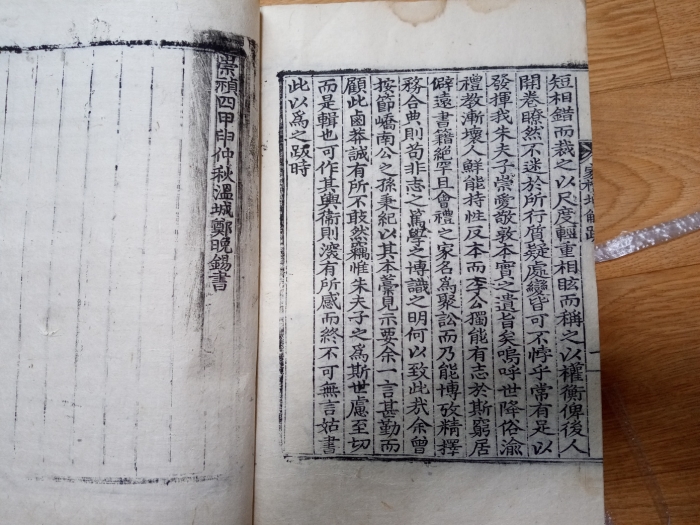 短相錯而裁之以尺度輕重相眩而稱之以權衡俾後人
開卷瞭然不迷於所行質疑處變皆可不悖乎常有足以
發揮我朱夫子崇愛敬敦本實之遺旨矣嗚呼世降俗渝
禮教漸壞人鮮能持性反本而李公獨能有志於斯窮居
僻遠書籍絶罕且會禮之家名為聚訟而乃能博攷精擇
務合典則苟非志之篤學之博識之明何以致此哉余曾
按節嶠南公之孫秉紀以其本藁見示要余一言甚勤而
顧此鹵莽誠有所不敢然竊惟朱夫子之為斯世慮至切
而是輯也可作其輿衛則深有所感而終不可無言姑書
此以為之跋時
崇禎四甲申仲秋溫城鄭晚錫書